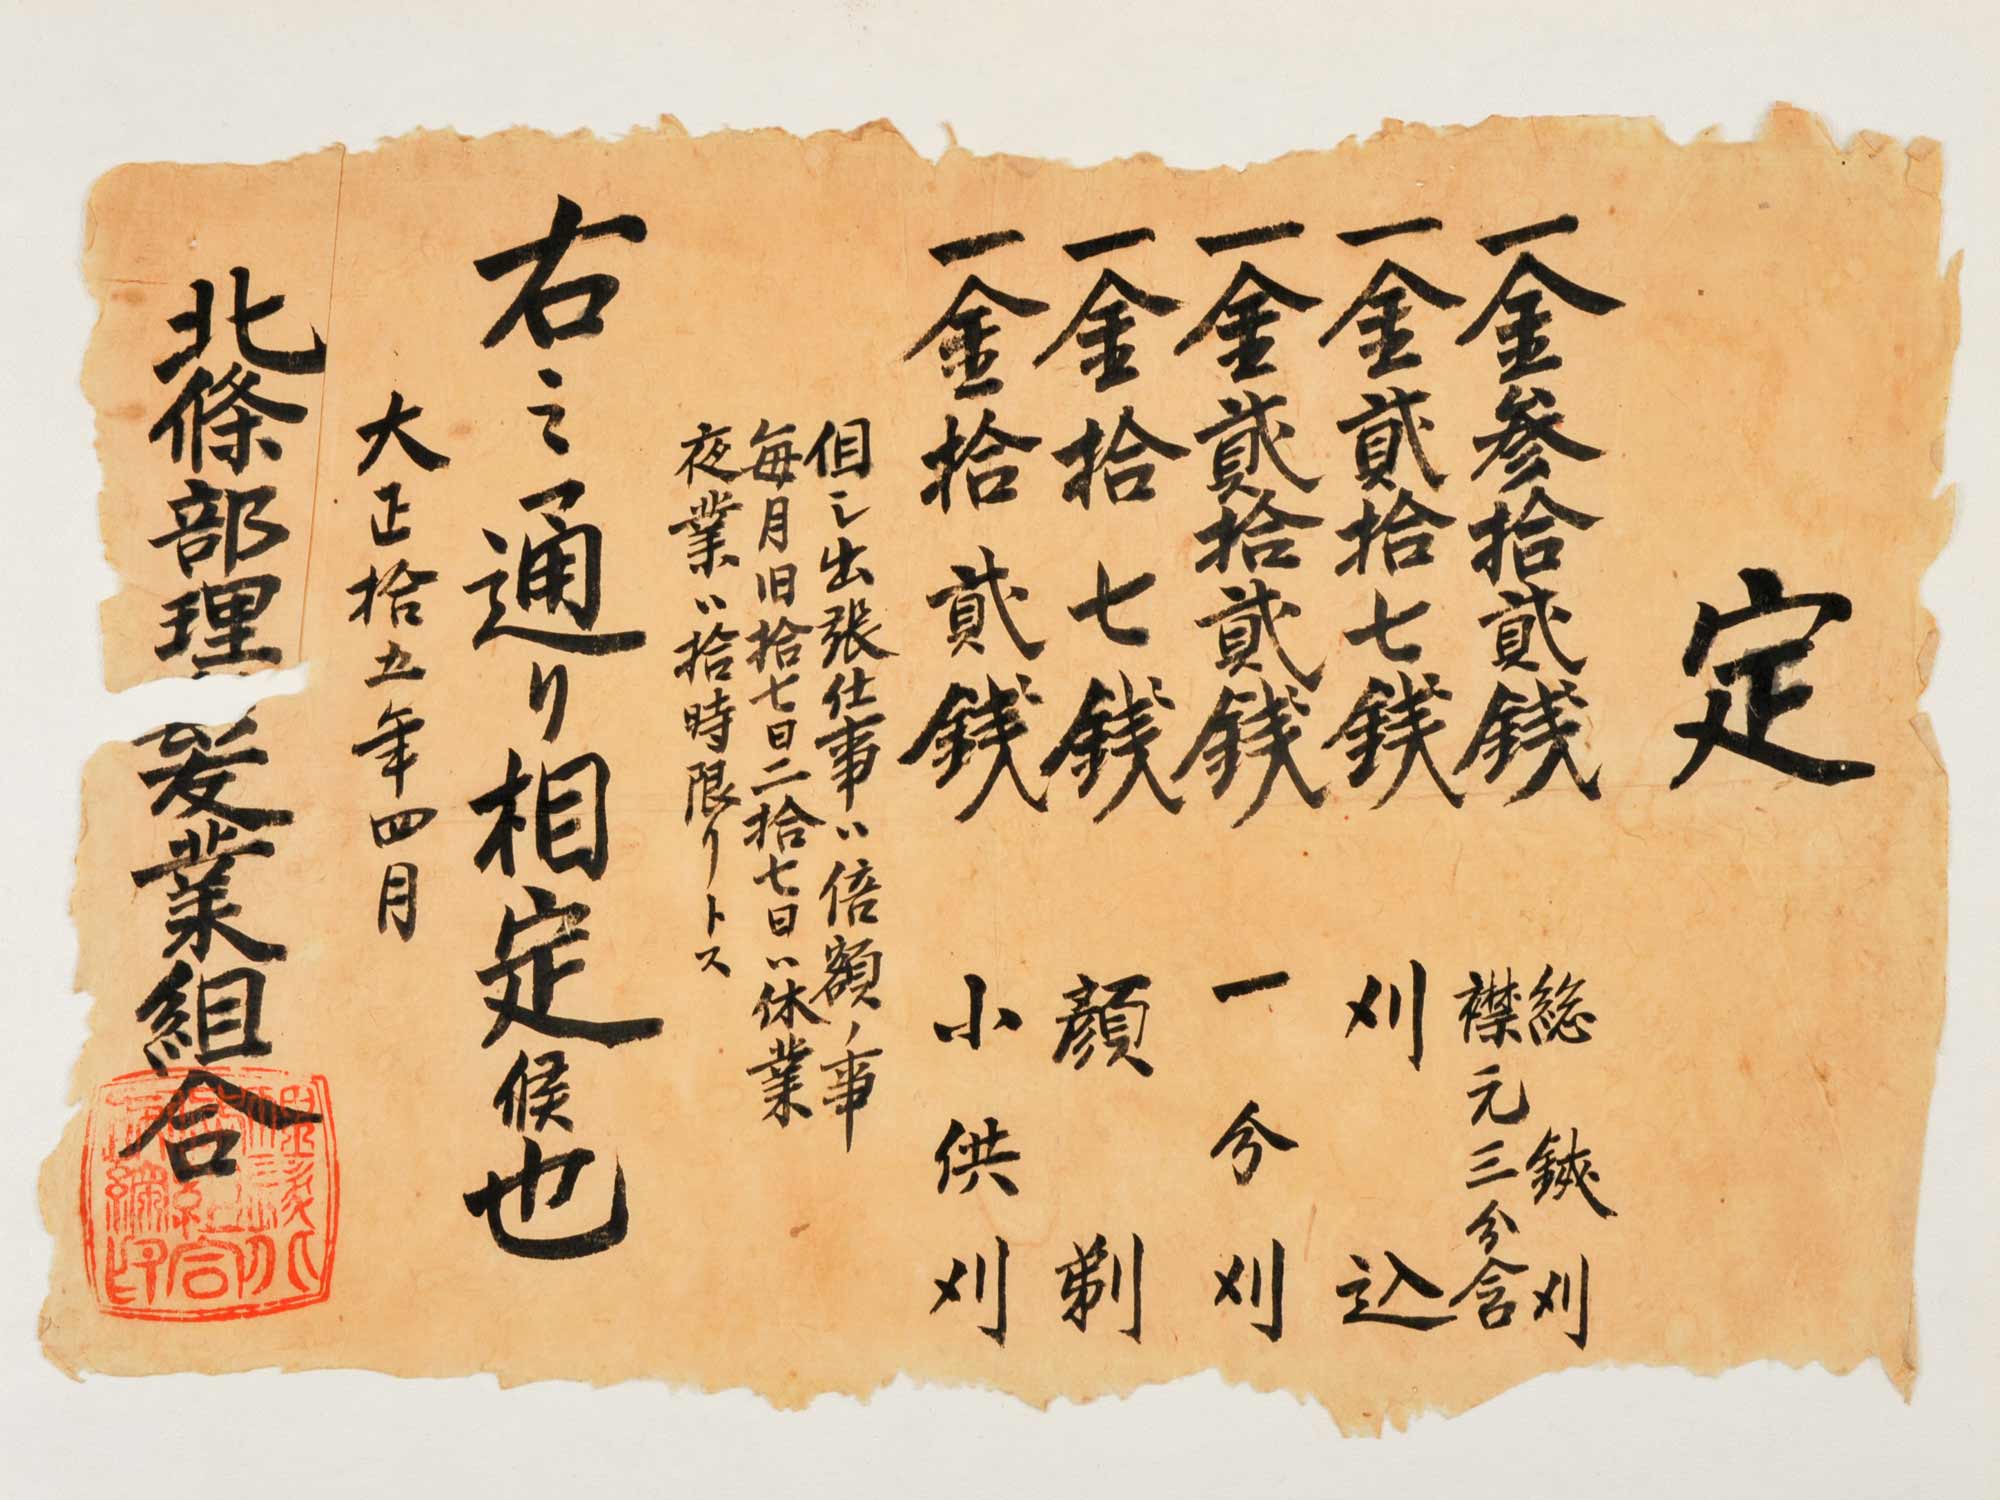 定
一金参拾貮銭 総鋏刈
襟元三分含
一金貮拾七銭 刈込
一金貮拾貮銭 一分刈
一金拾七銭 顔剃
一金拾貮銭 小供刈
但シ出張仕事ハ倍額ノ事
毎月旧拾七日二拾七日ハ休業
夜業ハ拾時限リトス
右之通り相定候也
大正拾五年四月
北條部理髪業組合